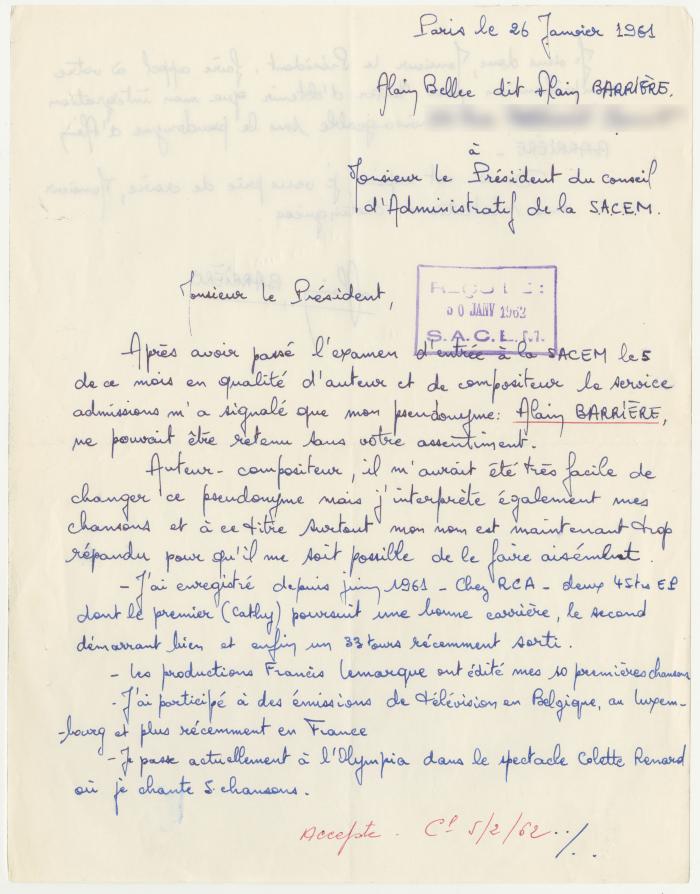 Paris le 26 Janvier 1961
Alain Bellec dit Alain BARRIÈRE.
à
Monsieur le Président du conseil
d'Administratif de la S.A.C.E.M.
Monsieur le Président,
REÇU LE :
30 JANV 1962
S.A.C.E.M.
Après avoir passé l'examen d'entrée à la SACEM le 5
de ce mois en qualité d'auteur et de compositeur le service
admissions m'a signalé que mon pseudonyme: Alain BARRIÈRE,
ne pouvait être retenu sans votre assentiment.
Auteur-compositeur, il m'aurait été très facile de
changer ce pseudonyme mais j'interprète également mes
chansons et à ce titre surtout mon nom est maintenant trop
répandu pour qu'il me soit possible de le faire aisément.
- J'ai enregistré depuis juin 1961 - Chez RCA - deux 45trs EP
dont le premier (Cathy) poursuit une bonne carrière, le second
démarrant bien et enfin un 33 tours récemment sorti.
- Les productions Francis Lemarque ont édité mes 10 premières chansons
- J'ai participé à des émissions de télévision en Belgique, au Luxem-
-bourg et plus récemment en France
- Je passe actuellement à l'Olympia dans le spectacle Colette Renard
où je chante 5 chansons.
Accepte - Cl 5/2/62 ../.